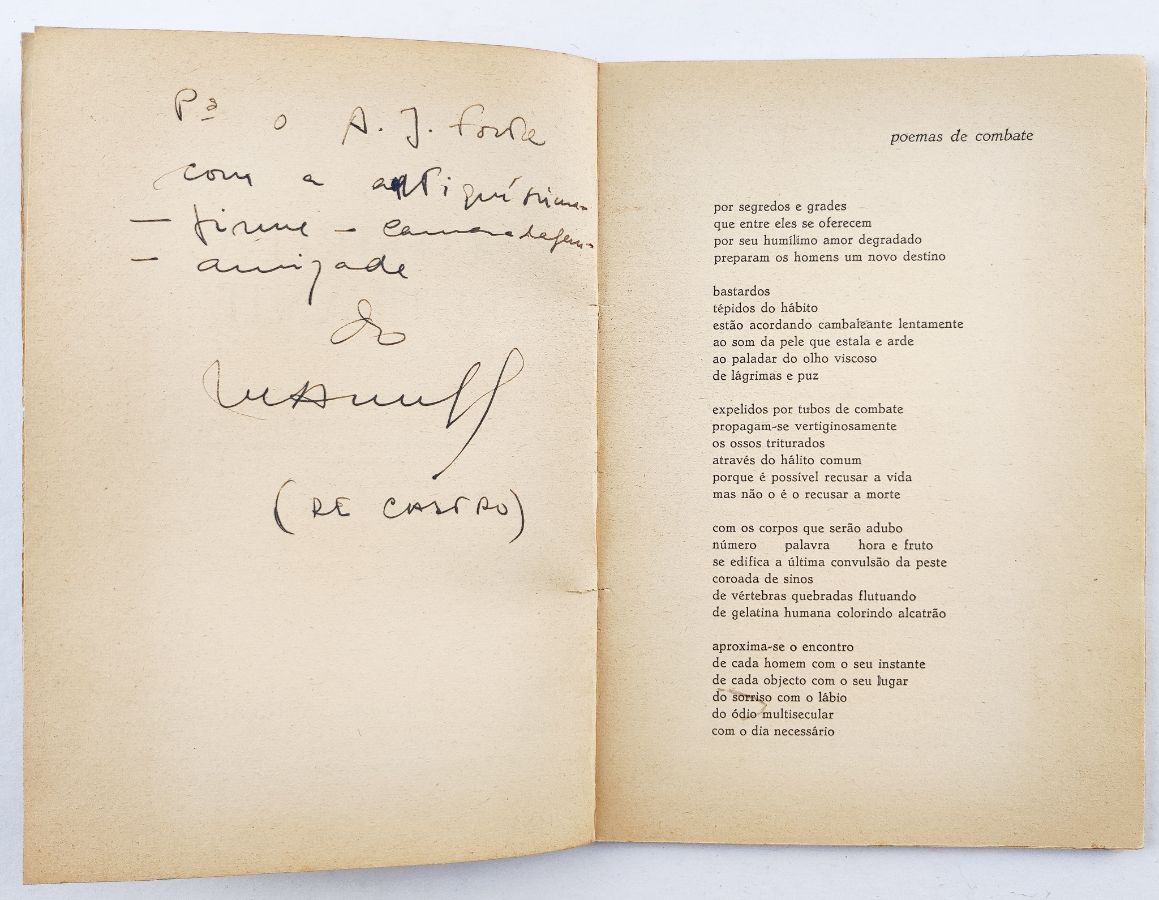 Pª o A. J. Forte
com a antiquíssima-
- firme - camaradagem-
- amizade
do
(DE CASTRO)
poemas de combate
por segredos e grades
que entre eles se oferecem
por seu humílimo amor degradado
preparam os homens um novo destino
bastardos
tépidos do hábito
estão acordando cambaleante lentamente
ao som da pele que estala e arde
ao paladar do olho viscoso
de lágrimas e puz
expelidos por tubos de combate
propagam-se vertiginosamente
os ossos triturados
através do hálito comum
porque é possível recusar a vida
mas não o é o recusar a morte
com os corpos que serão adubo
número palavra hora e fruto
se edifica a última convulsão da peste
coroada de sinos
de vértebras quebradas flutuando
de gelatina humana colorindo alcatrão
aproxima-se o encontro
de cada homem com o seu instante
de cada objecto com o seu lugar
do sorriso com o lábio
do ódio multisecular
com o dia necessário